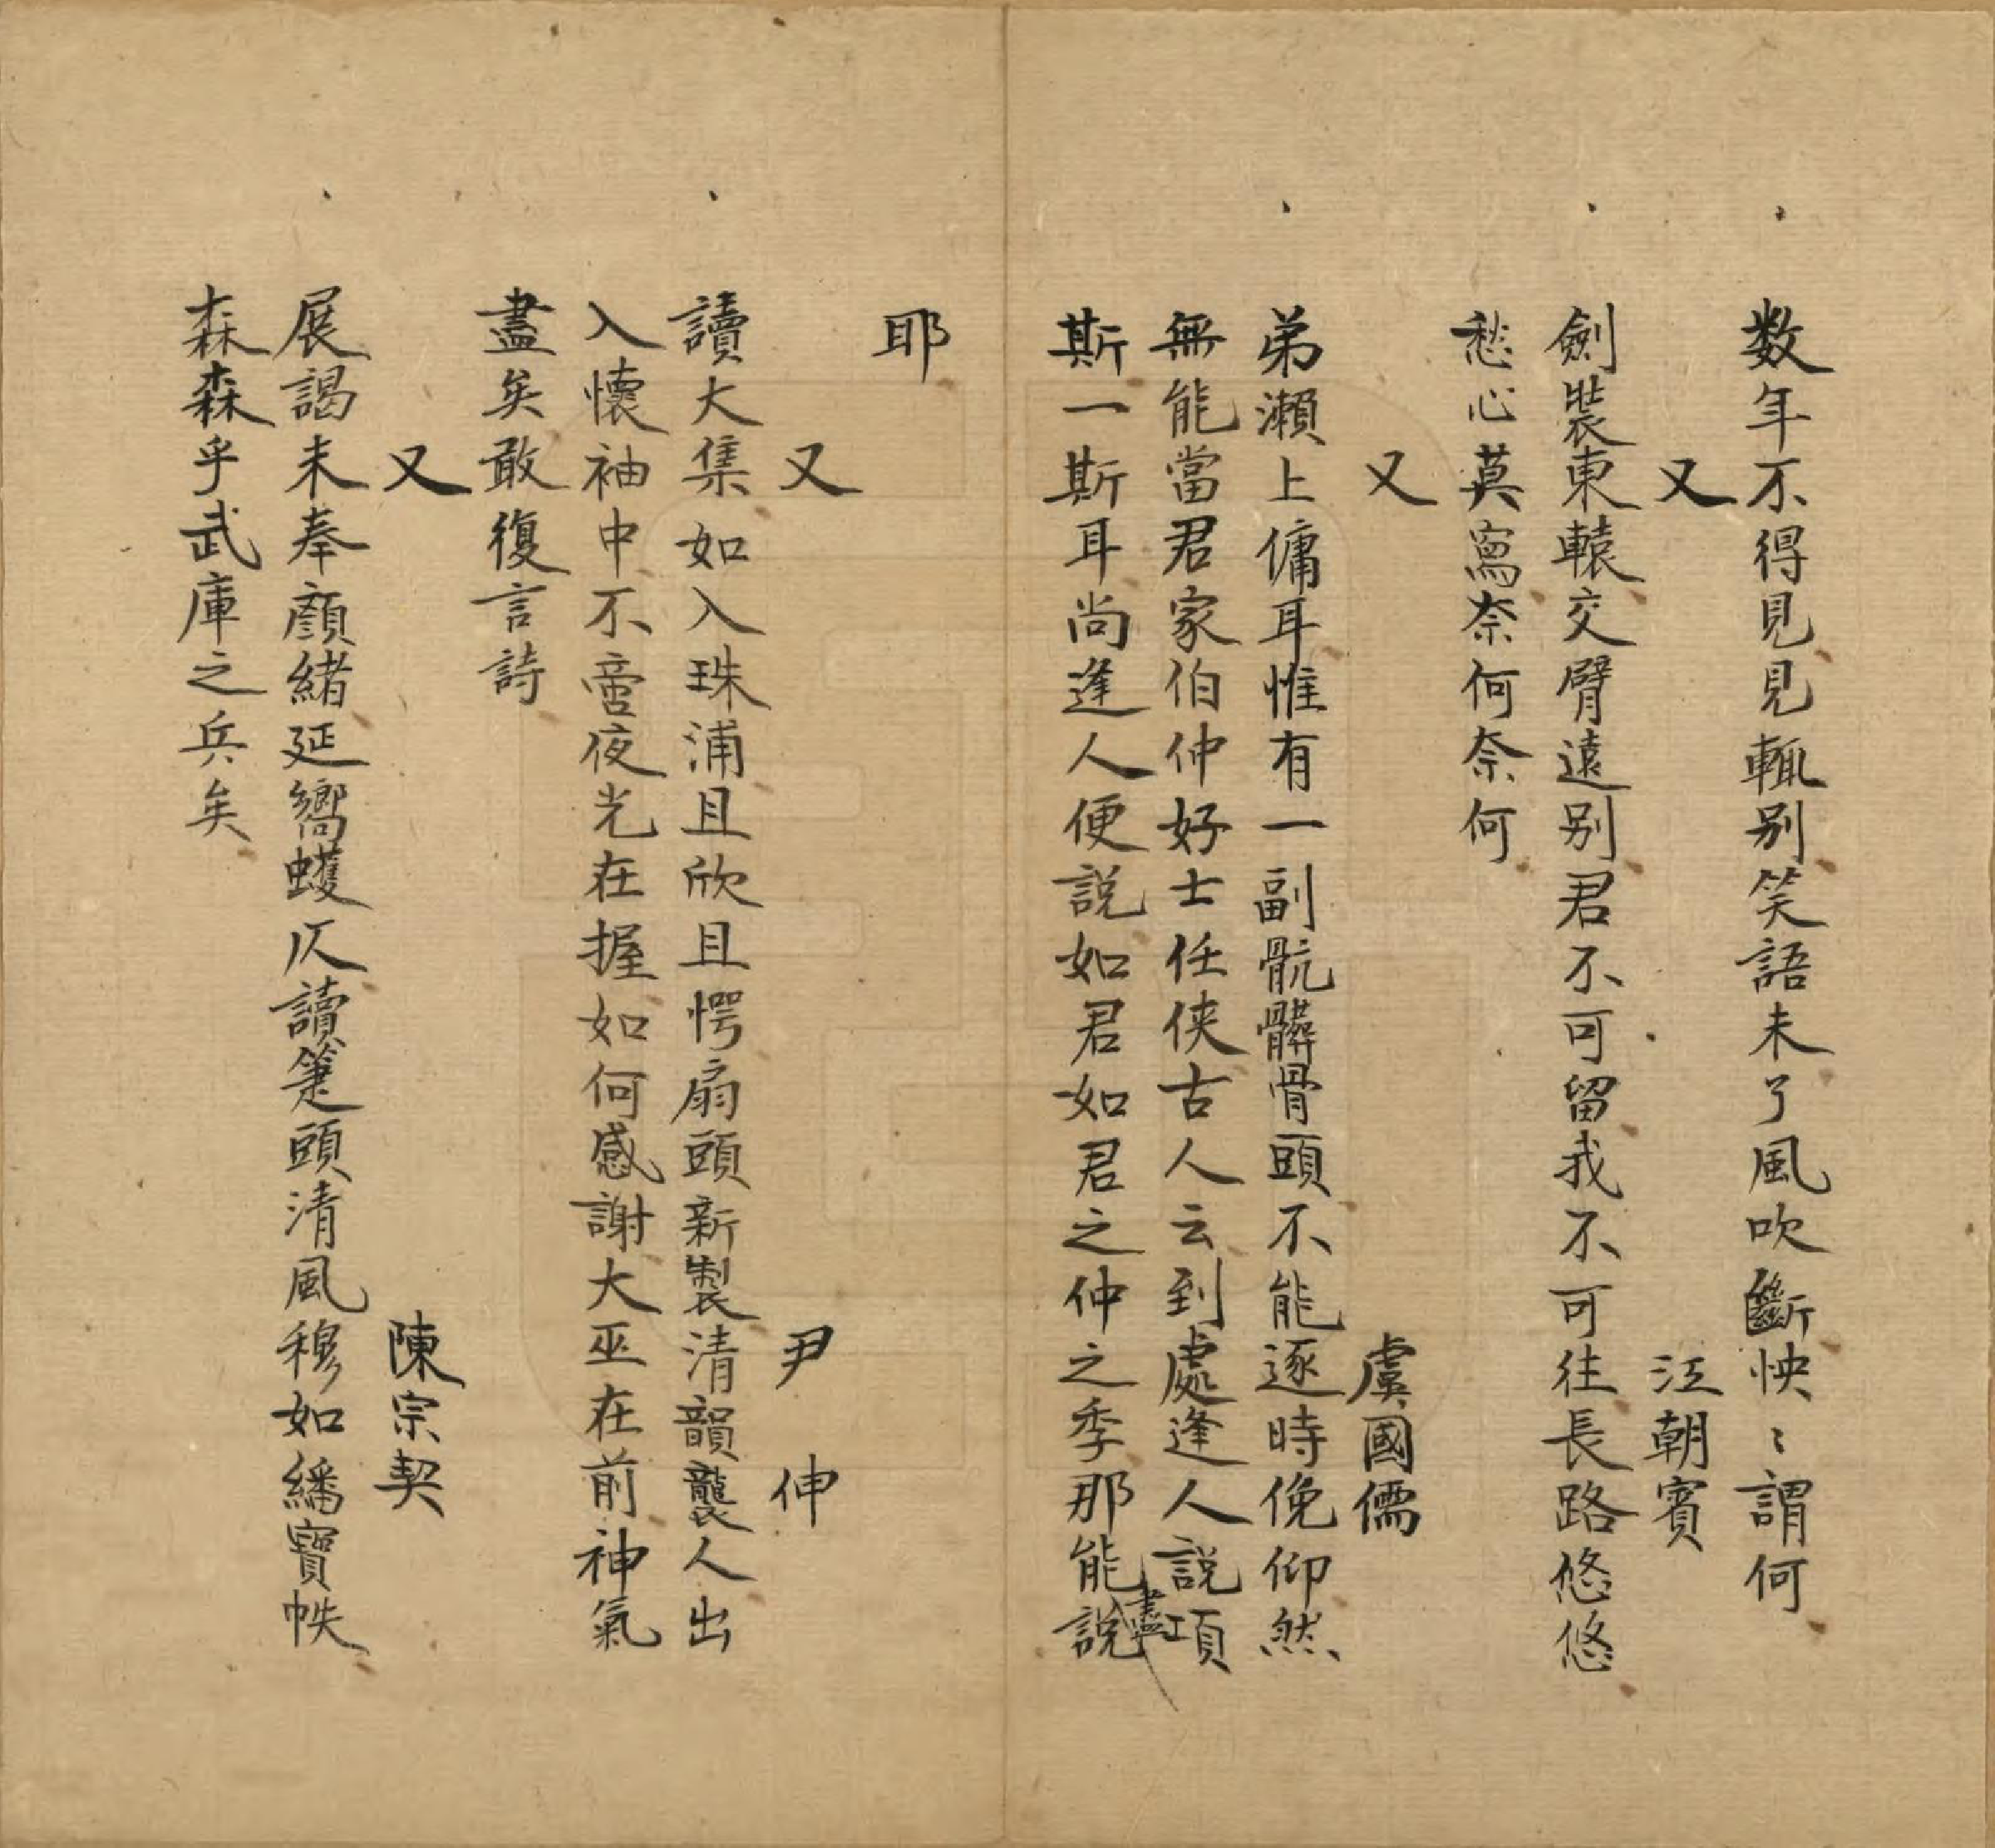 数年不得見見輒别笑語未了風吹斷怏〻謂何
又　江朝賓
劍裝東轅交臂遠别君不可留我不可往長路悠悠
愁心莫寫奈何奈何
又　虞國儒
弟瀨上傭耳惟有一副骯髒骨頭不能逐時俛仰然
無能當君家伯仲好士任俠古人云到處逢人說項
斯一斯耳尚逢人便說如君如君之仲之季那能說盡
耶
又　尹伸
讀大集如入珠浦且欣且愕扇頭新製清韻襲人出
入懷袖中不啻夜光在握如何感謝大巫在前神氣
盡矣敢復言詩
又　陳宗契
展謁未奉顏緒延嚮蠖仄讀箑頭清風穆如繙寶帙
森森乎武庫之兵矣